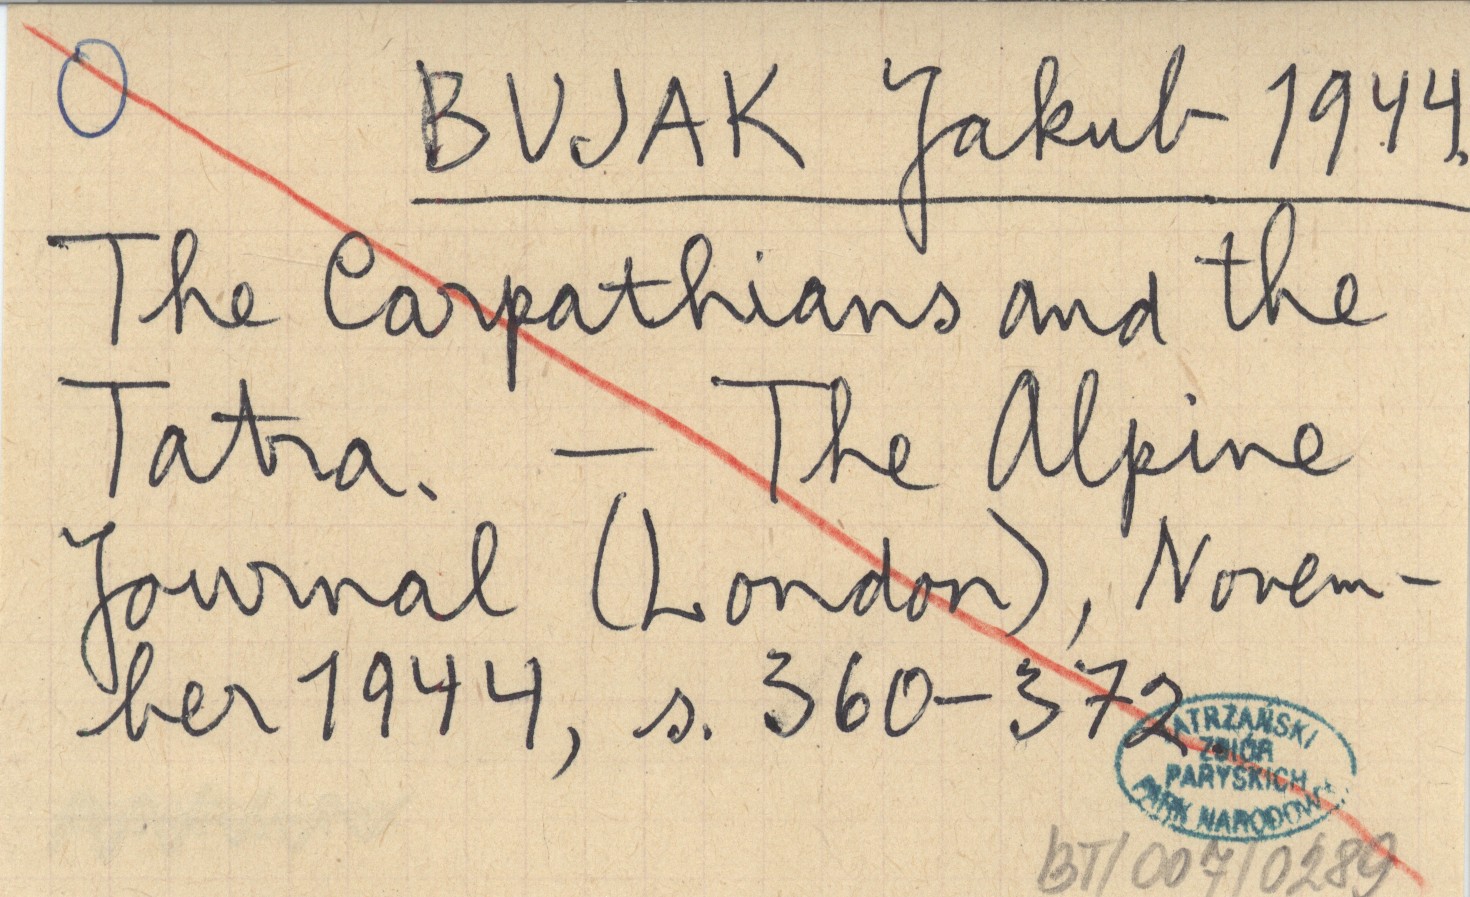 O
BUJAK Jakub 1944.
The Carpathians and the
Tatra. — The Alpine
Journal (London), Novem-
ber 1944, s. 360-372
TATRZAŃSKI
ZBIÓR
PARYSKICH
PARK NARODOWY
BT/007/0289